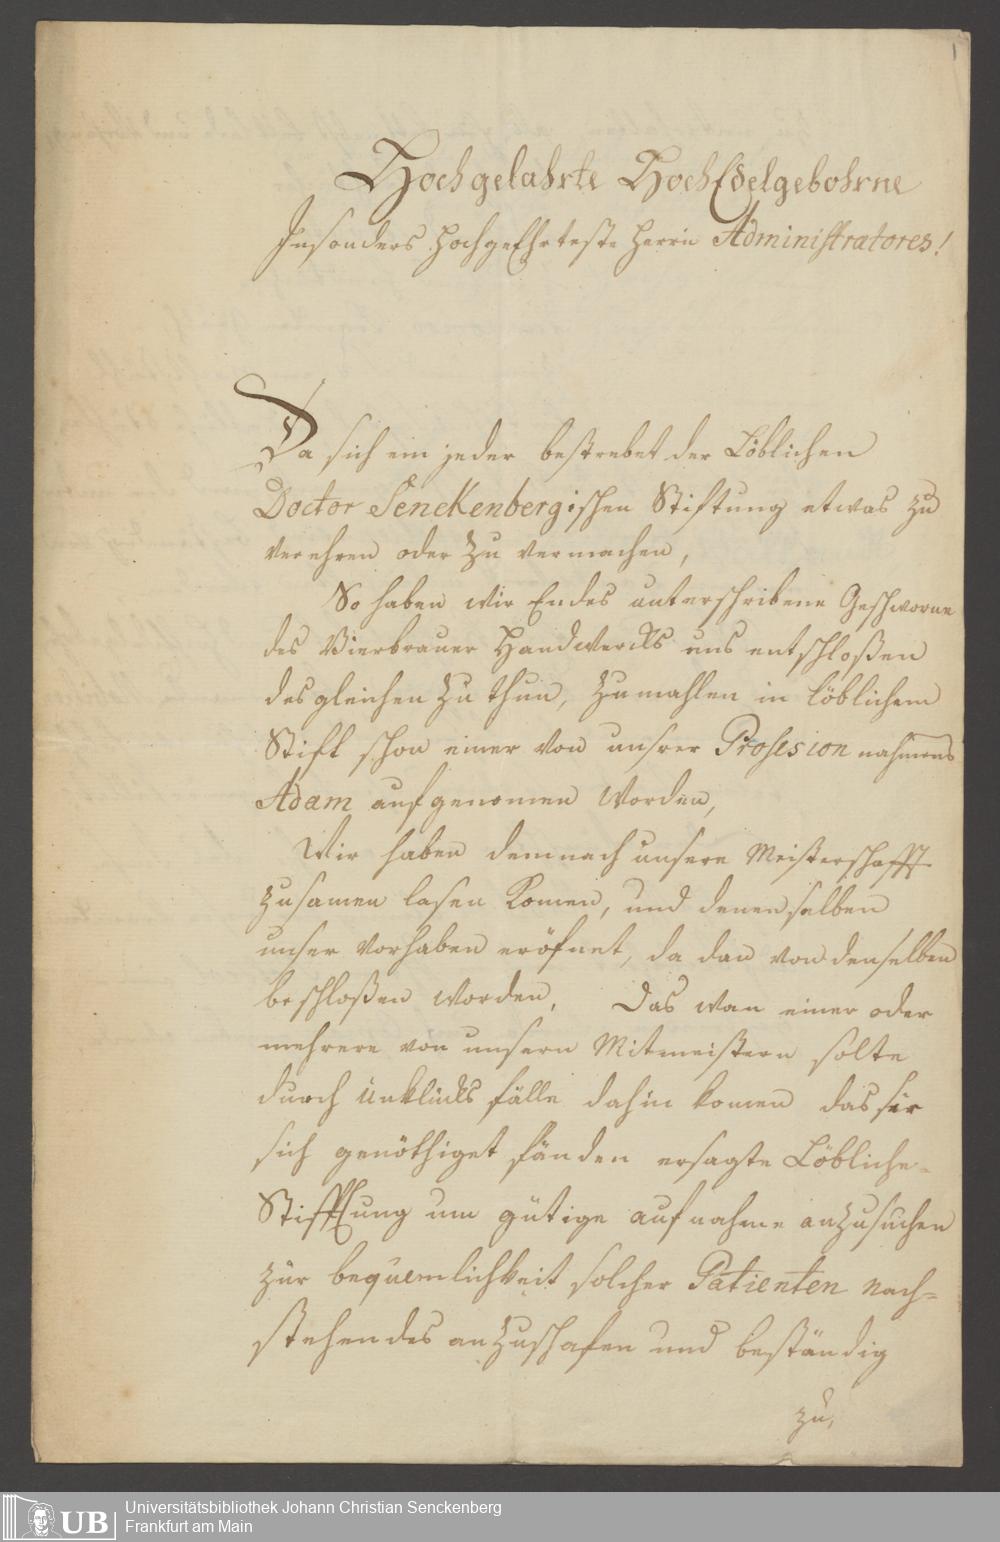 1
Hochgelahrte HochEdelgebohrne
Insonders HochgeEhrteste Herrn Administratores!
Da sich ein jeder bestrebet der Löblichen
Doctor Senckenbergischen Stiftung etwas zu
verehren oder zu vermachen,
So haben wir Endes unterschribene Geschworne
des Bierbrauer Handwercks uns entschloßen
desgleichen zu thun, zumahlen in löblichem
Stift schon einer von unsrer Profesion nahmens
Adam aufgenomen worden,
Wir haben demnach unsere Meisterschafft
zusamen lasen Komen, und denenselben
unser vorhaben eröfnet, da dan von denselben
beschloßen worden, Das wan einer oder
mehrere von unsern Mitmeistern solte
durch Unklücks fälle dahin komen das sie
sich genöthiget fänden ersagte Löbliche-
Stifftung um gütige aufnahme anzusuchen
zur bequemlichkeit solcher Patienten nach=
stehendes anzuschafen und beständig
zu,
UB
Universitätsbibliothek Johann Christian Senckenberg
Frankfurt am Main